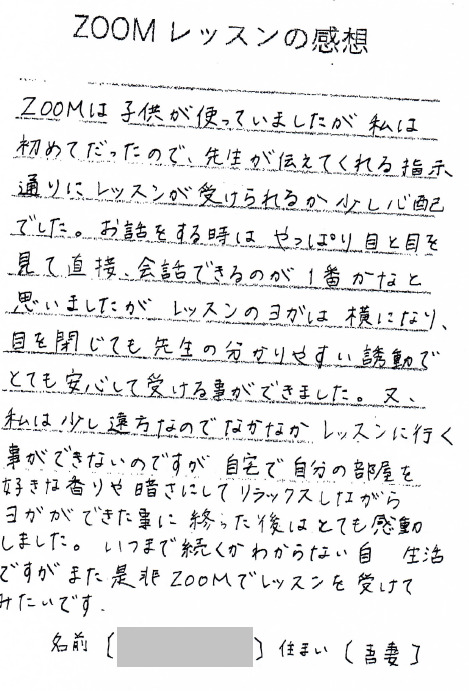 ZOOM レッスンの感想
ZOOMは 子供が使っていましたが 私は
初めてだったので、先生が伝えてくれる指示
通りに レッスンが受けられるか 少し心配
でした。お話をする時は やっぱり目と目を
見て直接、会話できるのが 1番かなと
思いましたが レッスンのヨガは 横になり、
目を閉じても 先生の分かりやすい 誘動で
とても安心して受ける事ができました。又、
私は少し遠方なのでなかなか レッスンに行く
事ができないのですが 自宅で自分の部屋を
好きな香りや 暗さにして リラックスしながら
ヨガができた事に 終った後はとても感動
しました。いつまで続くかわからない自 生活
ですが また 是非 ZOOMでレッスンを 受けて
みたいです.
名前 ( ) 住まい (吾妻)